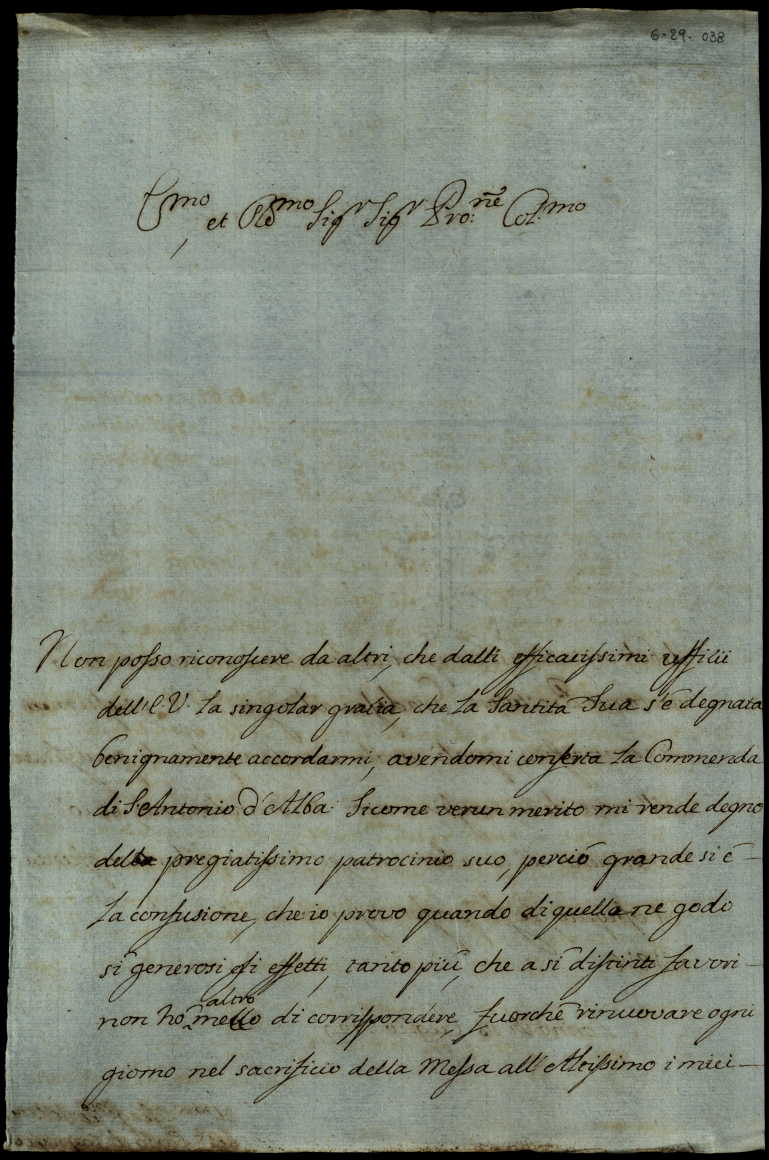 6-29. 038
E.mo et R.mo Sig.r Sig.r Pro.ne Col.mo
Non posso riconoscere da altri, che dalli efficacissimi uffizii
dell'E.V. la singolar grazia, che la Santità Sua s'è degnata
benignamente accordarmi, avendomi conferta la Commenda
di S. Antonio d'Alba. Sicome verun merito mi rende degno
della pregiatissimo patrocinio suo, perciò grande si è
la confusione, che io provo quando di quella ne godo
sì generosi gli effetti, tanto più, che a sì distinti favori
non ho altro mezzo di corrispondere, fuorchè rinuovare ogni
giorno nel sacrificio della Messa all'Altissimo i miei